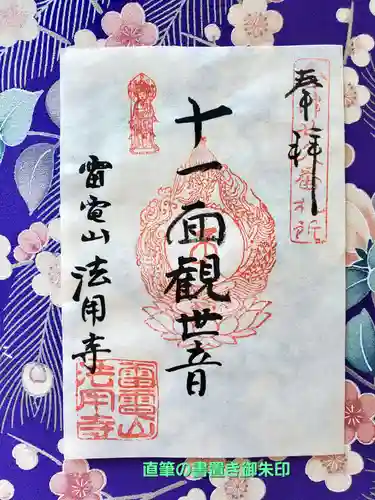 奉拝
十一面観世音
雷電山 法用寺
雷電山
法用寺
直筆の書置き御朱印